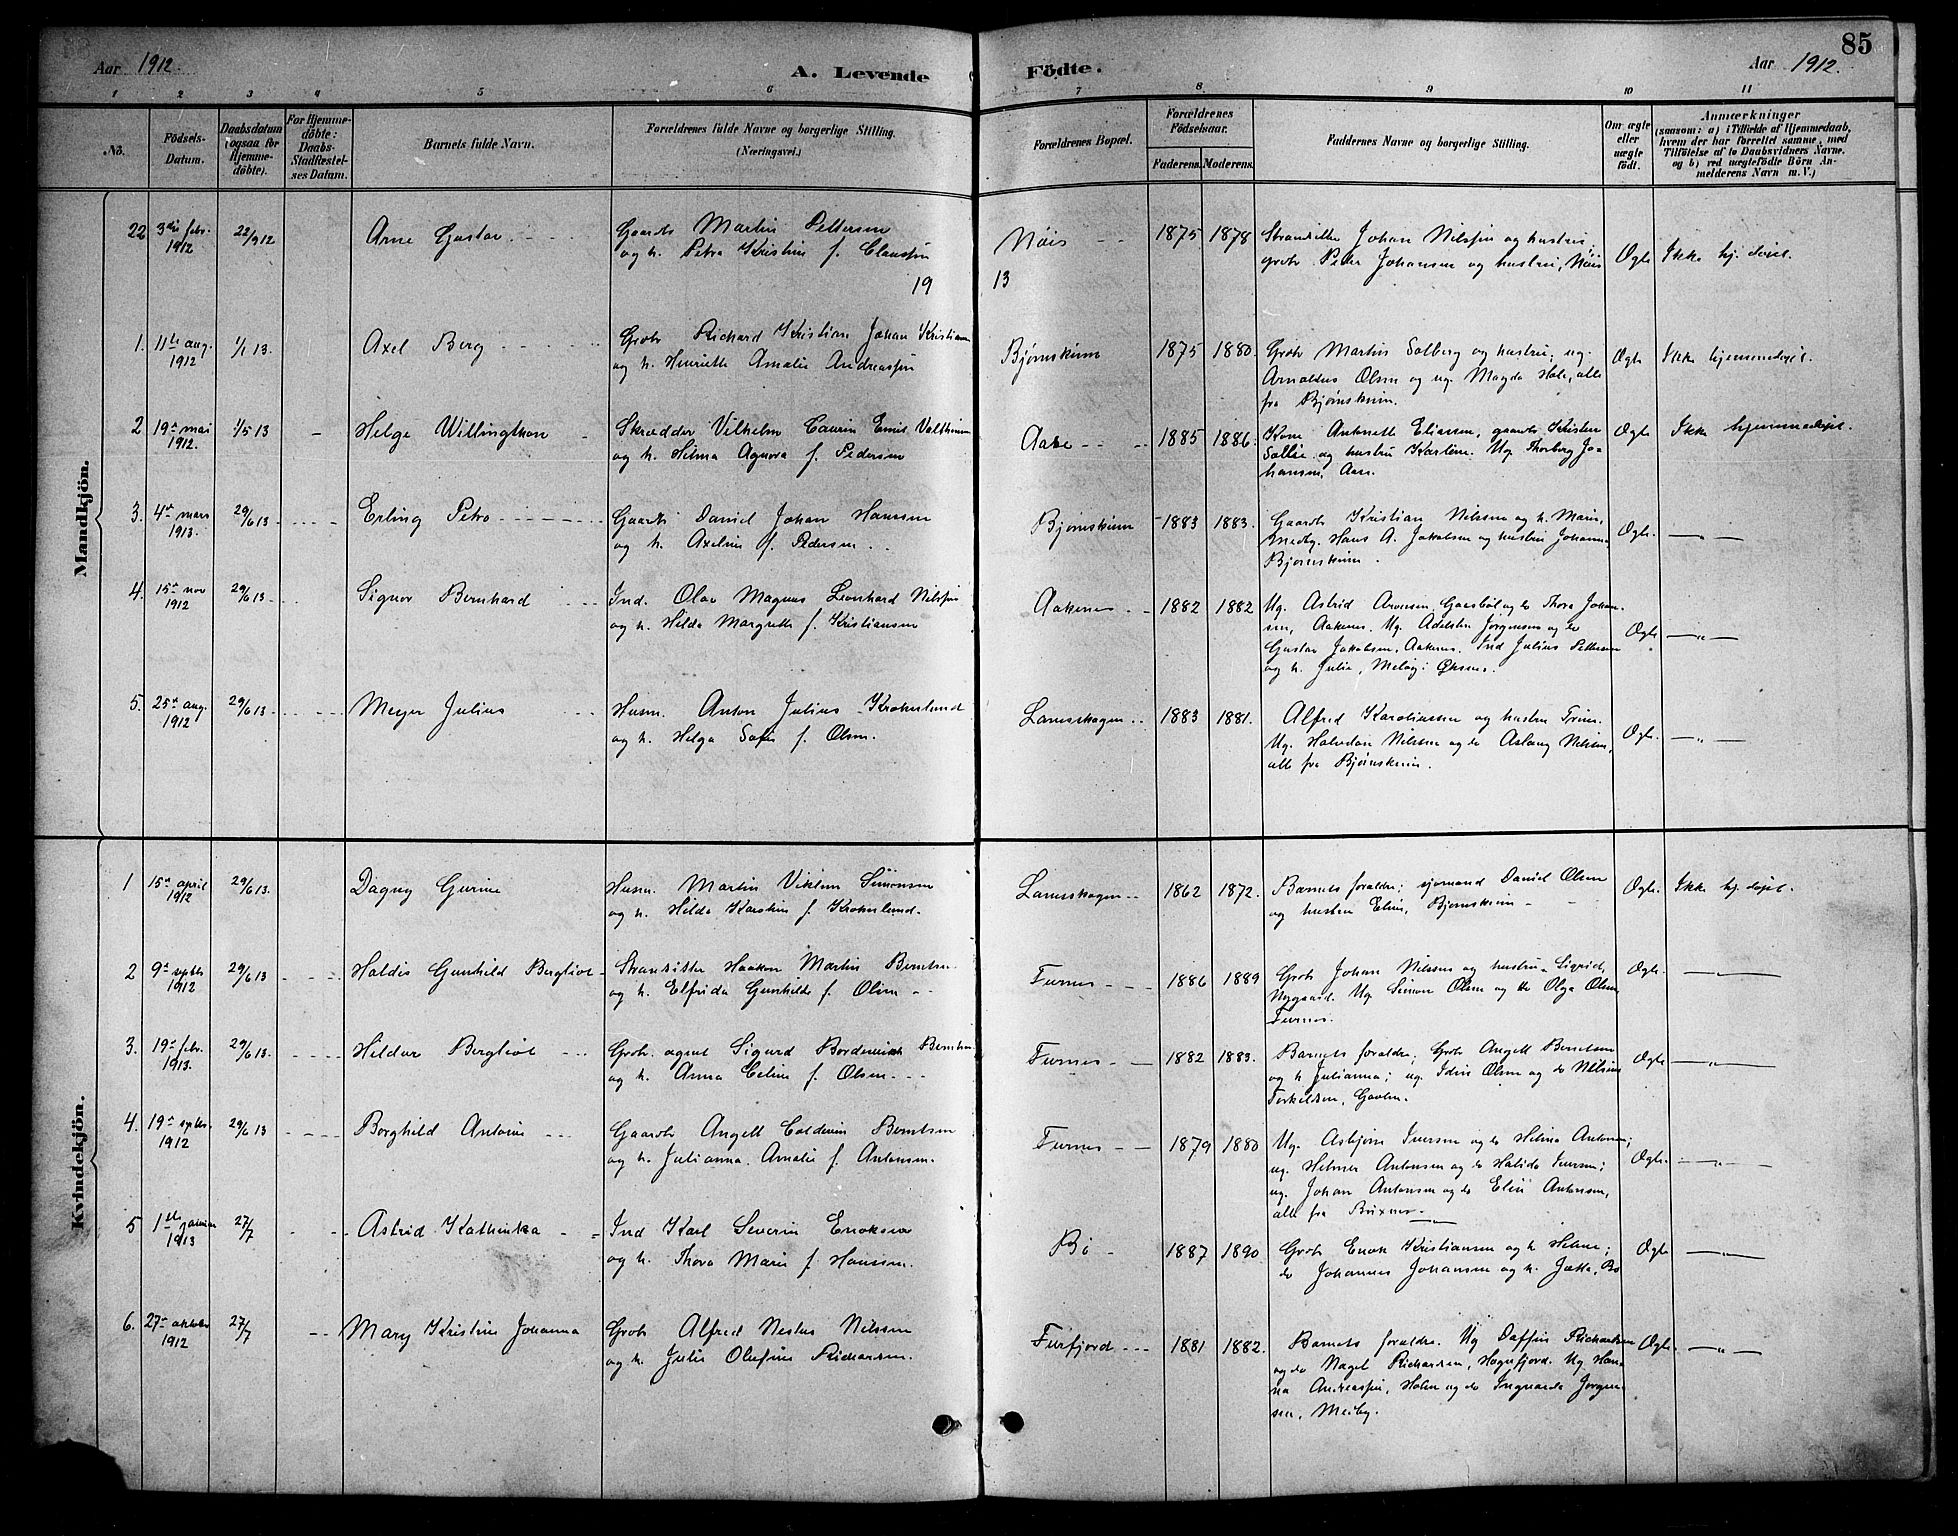 85
Aar 1912.
A. Levende Födte.
Aar 1912.
1 2 3 4 5 6 7 8. 9 10 11
No.
Födsels-Datum.
Daabsdatum (ogsaa for Hjemme-döbte).
For Hjemme-döbte: Daabs-Stadfæstel-ses Datum.
Barnets fulde Navn.
Forældrenes fulde Navne og borgerlige Stilling.
(Næringsvei.)
Forældrenes Bopæl.
Forældrenes Födselsaar.
Faderens. Moderens.
Faddernes Navne og borgerlige Stilling.
Om ægte eller uægte født.
Anmærkninger
(saasom: a) i Tilfælde af Hjemmedaab, hvem der har forrettet samme, med Tilföielse af to Daabsvidners Navne. og b) ved uægtefödte Börn An-melderens Navn m. V.)
Mandkjön.
22 3die febr. 1912 22/9 12 Arne Gustav Gaardb Martin Pettersen
og h. Petra Kristine f. Claussen
Nöis 1875 1878 Strandsitter Johan Nilssen og hustru;
grbr Peder Johansen og hustru, Nöis Ægte Ikke hj. døpt.
19 13
1. 11te aug. 1912 1/1 13. Axel Berg Grbr Richard Kristian Johan Kristiansen
og h. Henriette Amalie Andreassen
Bjørnskinn 1875 1880. Grbr Martin Solberg og hustru; ug.
Arnoldus Olsen og ug. Magda Hole, alle
fra Bjørnskinn. Ægte Ikke hjemmedøpt.
2 19de mai 1912. 1/5 13 Helge Willingthon Skrædder Vilhelm Laurin Emil Valthinsen
og h. Helma Agnora f. Pedersen
Aase 1885 1886. Kone Antonette Eliassen, gaardb Kristen
Sollie og hustru Karoline. Ug Thorberg Jo-
hansen, Aase. Ægte Ikke hjemmedøpt.
3. 4de mars 1913. 29/6 13 Erling Petro Gaardb Daniel Johan Hanssen
og h. Axeline f. Pedersen
Bjørnskinn 1883 1883. Gaardb Kristian Nilssen og h. Marie,
Medby. Hans A. Jakobsen og hustru Johanna,
Bjørnskinn. Ægte.
4. 15de nov 1912 29/6 13 Signor Bernhard Ind. Olav Magnus Leonhard Nilssen
og h. Hilda Margrethe f. Kristiansen
Aakenes 1882 1882 Ug. Astrid Arnesen, Gaasbøl og do Thora Johan-
sen, Aakenes. Ug. Adelsten Jørgensen og do
Gustav Jakobsen, Aakenes. Ind Julius Pettersen
og h. Julie, Meløy i Øksnes. Ægte
5. 25de aug. 1912 29/6 13 Meyer Julius Husm. Anton Julius Krokerlund
og h. Helga Sofie f. Olsen.
Lanesskogen 1883 1881. Alfred Karoliussen og hustru Trine.
Ug. Halvdan Nilssen og do Aslaug Nilssen,
alle fra Bjørnskinn. Ægte.
Kvindekjön.
1 15de april 1912 29/6 13. Dagny Gurine Husm. Martin Viktem Simonsen
og h. Hilda Karoline f. Krokerlund.
Lanesskogen 1862 1872. Barnets foraldre; sjømand Daniel Olsen
og hustru Eline, Bjørnskinn Ægte. Ikke hj. døpt.
2 9de septbr 1912 29/6 13 Haldis Gunhild Bergliot Strandsitter Haakon Martin Berntsen
og h. Elfrida Gunhilde f. Olsen
Furnes 1886 1889 Grbr Johan Nilssen og hustru Sigrid,
Nygaard. Ug Simon Olsen og do Olga Olsen,
Furnes. Ægte.
3. 19de febr. 1913. 29/6 13. Hildur Bergliot Grbr. agent Sigurd Bordevick Berntsen
og h. Anna Celine f. Olsen
Furnes 1882 1883. Barnets foraldre; Grbr Angell Berntsen
og h. Julianna; ug. Idin Olsen og do Nilsine
Torkeldsen, Gavlen. Ægte
4. 19de septbr. 1912 29/6 13 Borghild Antonie Gaardb Angell Calderin Berntsen
og h. Julianna Amalie f. Antonsen.
Furnes 1879 1880 Ug. Asbjørn Iversen og do Helma Antonsen;
ug. Helmer Antonsen og do Halida Iversen;
ug. Johan Antonsen og do Elise Antonsen,
alle fra Buxnes. Ægte.
5 1ste januar 1913 27/7 Astrid Kathinka Ind Karl Severin Enoksen
og h. Thora Marie f. Hanssen.
Bø 1887 1890 Grbr Enok Kristiansen og h Helene;
do Johannes Johansen og h. Jætta, Bø Ægte
6. 27de oktober 1912 27/7 Mary Kristine Johanna Grbr Alfred Nestus Nilssen
og h. Julie Olufine Richardsen.
Furfjord 1881 1882. Barnets foraldre. Ug Daffin Richardsen
og do Nagel Richardsen, Høgnfjord. Ug Han-
na Andreassen, Holm og do Ingvarda Jørgen-
sen, Medby. Ægte.